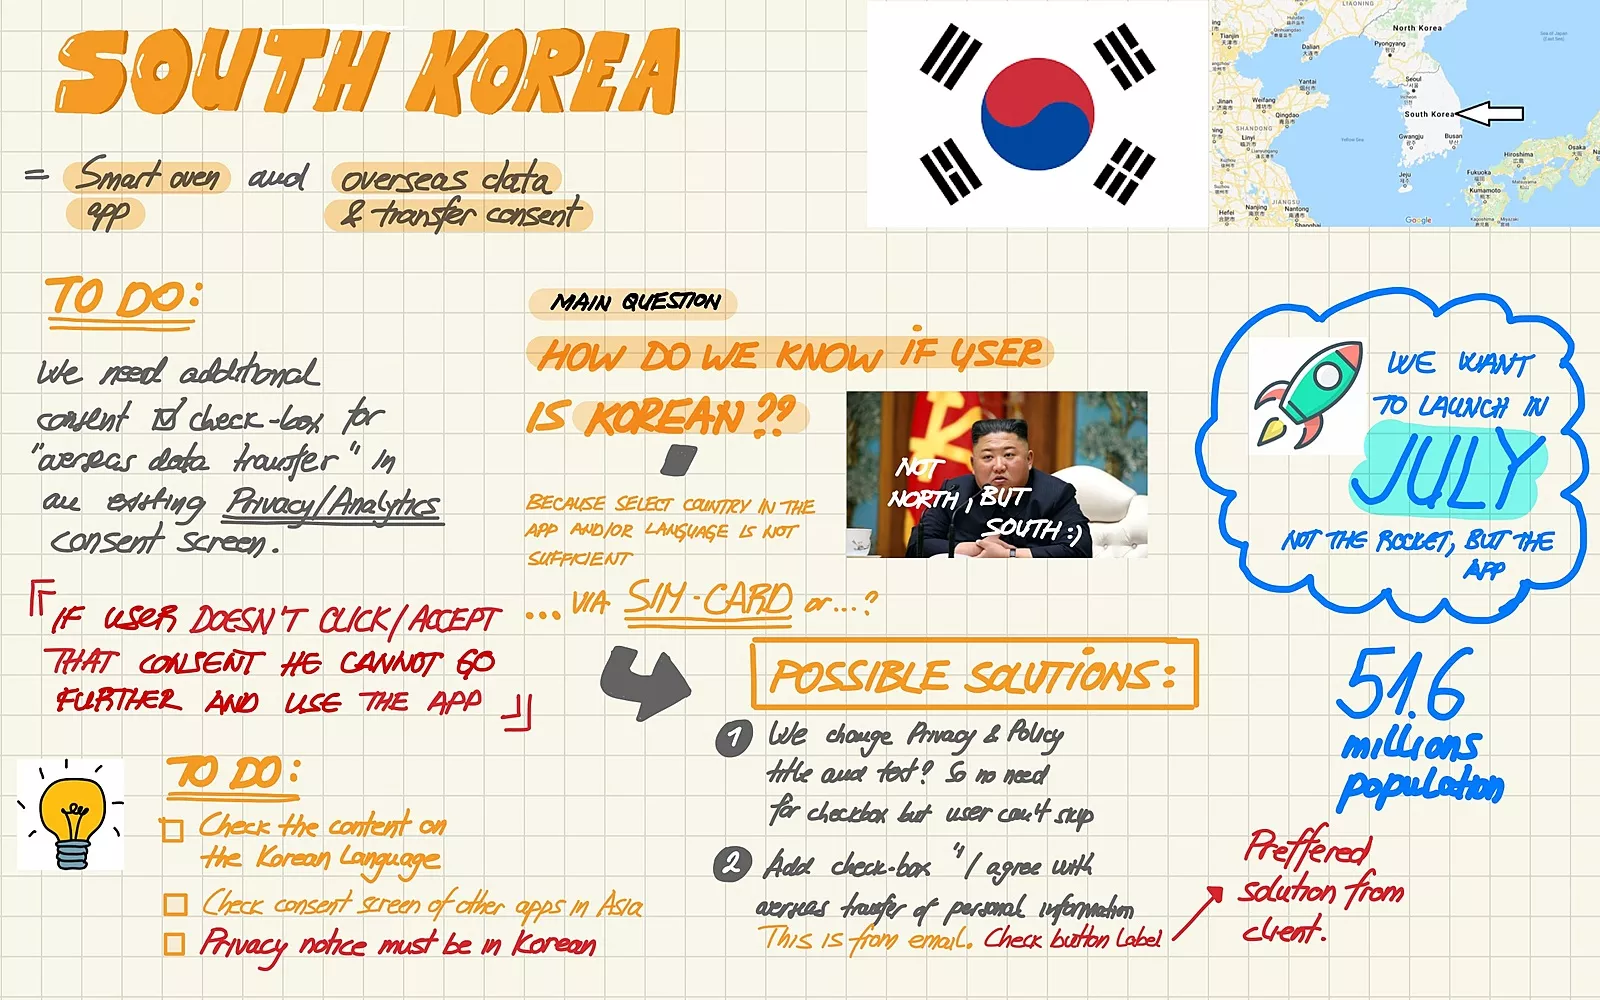 SOUTH KOREA
= Smart oven and overseas data
app & transfer consent
TO DO:
We need additional
consent ☑ check-box for
"overseas data transfer" in
an existing Privacy/Analytics
consent screen.
IF USER DOESN'T CLICK/ACCEPT
THAT CONSENT HE CANNOT GO
FURTHER AND USE THE APP
TO DO:
Check the content on
the Korean Language
Check consent screen of other apps in Asia
Privacy notice must be in Korean
MAIN QUESTION
HOW DO WE KNOW IF USER
IS KOREAN??
BECAUSE SELECT COUNTRY IN THE
APP AND/OR LANGUAGE IS NOT
SUFFICIENT
... VIA SIM-CARD or...?
NOT
NORTH, BUT
SOUTH :)
POSSIBLE SOLUTIONS:
1 We change Privacy & Policy
title and text? So no need
for checkbox but user can't skip
2 Add check-box "I agree with
overseas transfer of personal information
This is from email. Check button label
Preffered
solution from
client.
WE WANT
TO LAUNCH IN
JULY
NOT THE ROCKET, BUT THE
APP
51.6
millions
population
North Korea
Pyongyang
Seoul
South Korea
Gwangju
Busan
Jeju
Tianjin
Dalian
Yantai
Jinan
Weifang
Qingdao
SHANDONG
Linyi
Xuzhou
JIANGSU
Hefei
Nanjing
Nantong
Shanghai
LIAONING
Yellow Sea
Sea of Japan
(East Sea)
Hiroshima
Osaka
Fukuoka
Kumamoto
Matsuyama
Kagoshima
Miyazaki
Google